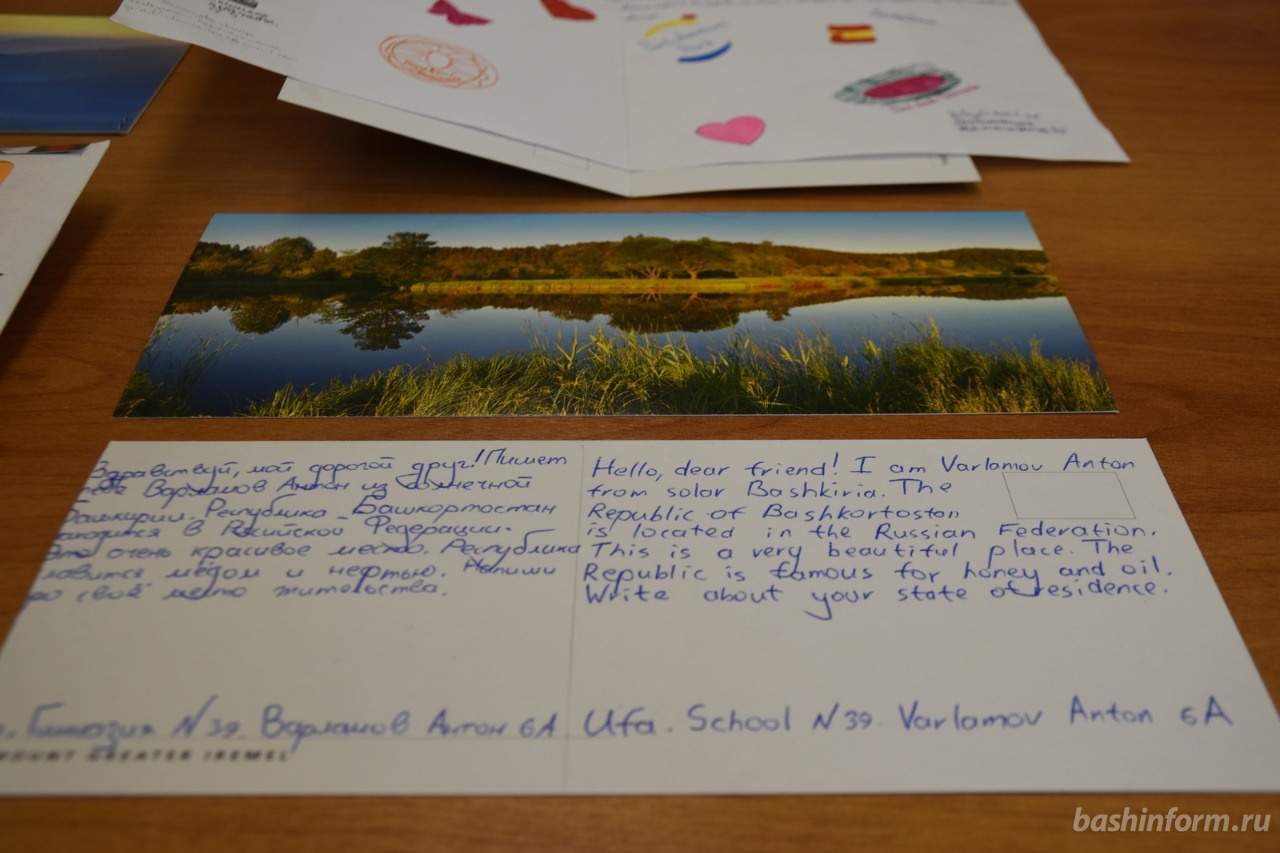 Здравствуй, мой дорогой друг! Пишет
тебе Варламов Антон из солнечной
Башкирии. Республика Башкортостан
находится в Российской Федерации.
Это очень красивое место. Республика
славится мёдом и нефтью. Напиши
про своё место жительства.
Гимназия N39. Варламов Антон 6А
MOUNT GREATER IREMEL
Hello, dear friend! I am Varlamov Anton
from solar Bashkiria. The
Republic of Bashkortostan
is located in the Russian Federation.
This is a very beautiful place. The
Republic is famous for honey and oil.
Write about your state of residence.
Ufa. School N39. Varlamov Anton 6A
bashinform.ru